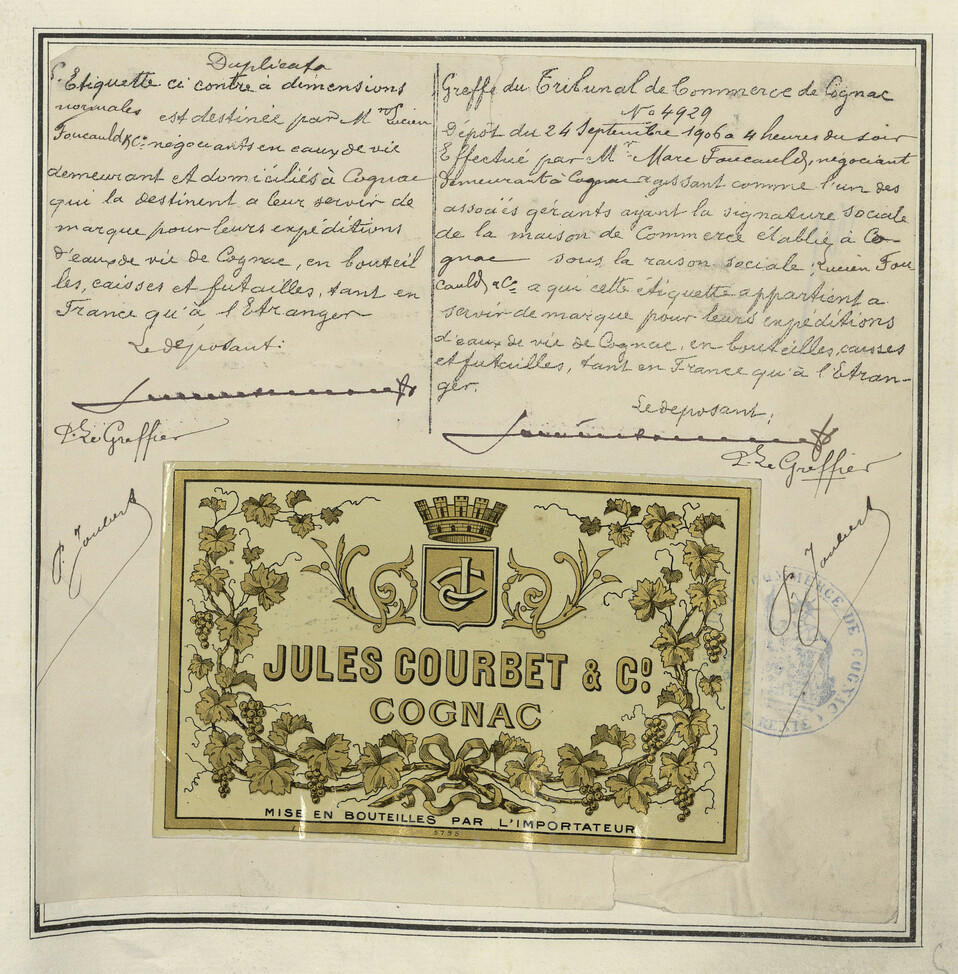 Duplicata
L'Etiquette ci contre à dimensions
normales est destinée par Mrs Lucien
Foucauld & Cie négociants en eaux de vie
demeurant et domiciliés à Cognac
qui la destinent a leur servir de
marque pour leurs expéditions
d'eaux de vie de Cognac, en bouteil
les, caisses et futailles, tant en
France qu'à l'Etranger
Le déposant:
P. Le Greffier
P. Joubert
Greffe du Tribunal de Commerce de Cognac
No 4929
Dépôt du 24 Septembre 1906 a 4 heures du soir
Effectué par Mr Marc Foucauld, négociant
demeurant à Cognac agissant comme l'un des
associés gérants ayant la signature sociale
de la maison de Commerce établie à Co-
gnac sous la raison sociale: Lucien Fou
cauld, & Cie a qui cette étiquette appartient a
servir de marque pour leurs expéditions
d'eaux de vie de Cognac, en bouteilles, caisses
et futailles, tant en France qu'à l'Etran-
ger.
Le déposant:
P. Le Greffier
Joubert
COMMERCE DE COGNAC
JC
JULES COURBET & Co.
COGNAC
MISE EN BOUTEILLES PAR L'IMPORTATEUR
5795